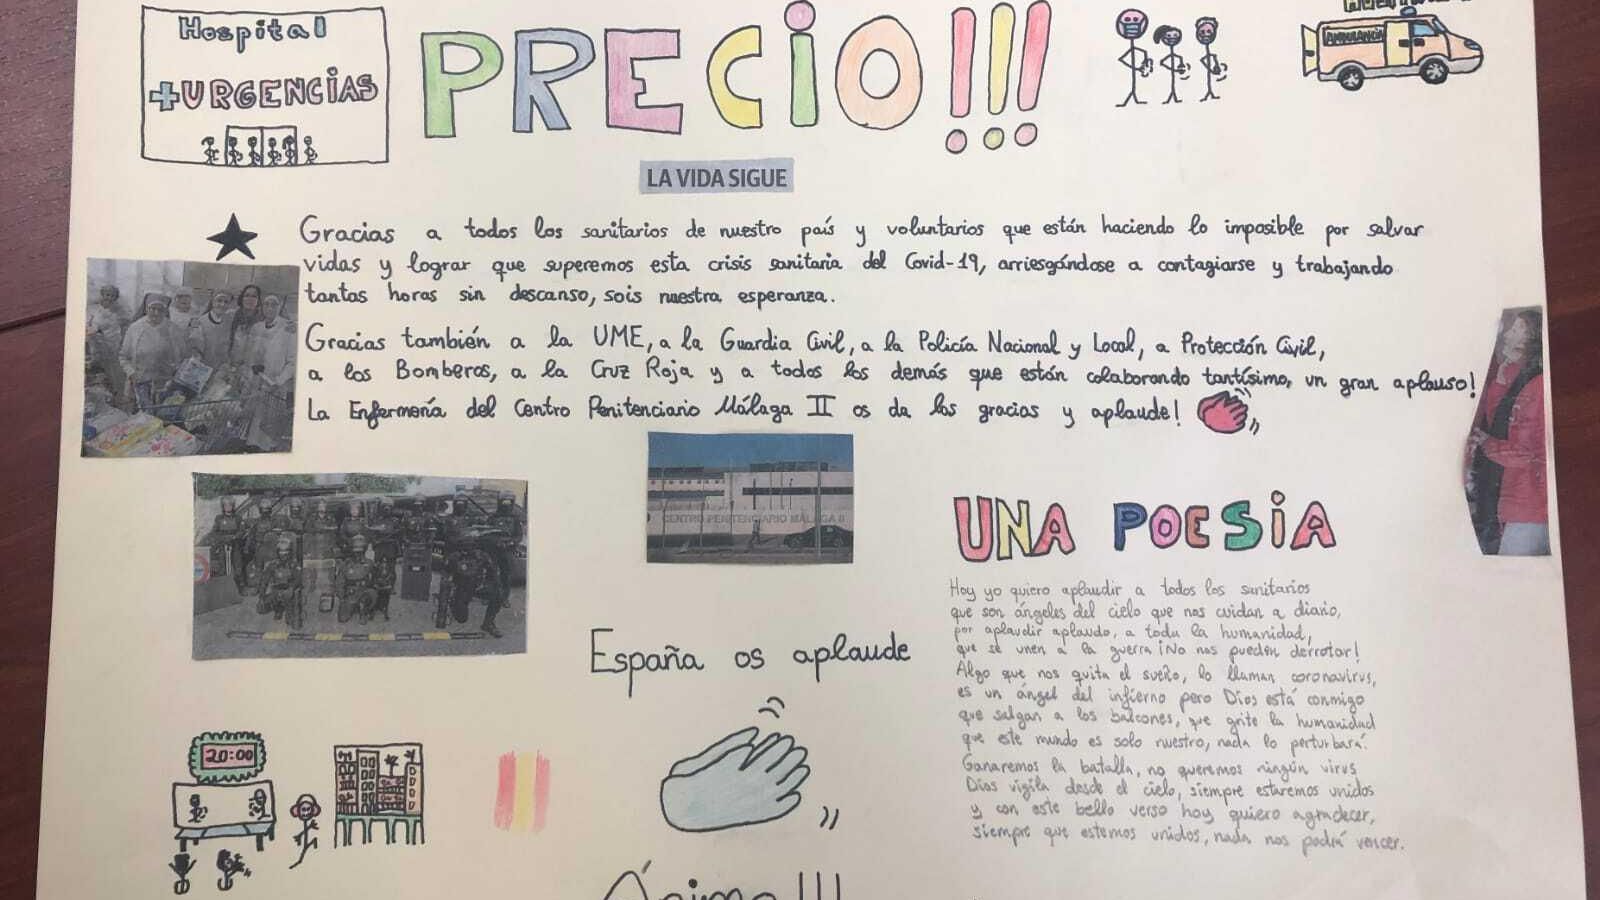 Hospital
+URGENCIAS
PRECIO!!!
AMBULANCIA
LA VIDA SIGUE
Gracias a todos los sanitarios de nuestro país y voluntarios que están haciendo lo imposible por salvar
vidas y lograr que superemos esta crisis sanitaria del Covid-19, arriesgándose a contagiarse y trabajando
tantas horas sin descanso, sois nuestra esperanza.
Gracias también a la UME, a la Guardia Civil, a la Policía Nacional y Local, a Protección Civil,
a los Bomberos, a la Cruz Roja y a todos los demás que están colaborando tantísimo, un gran aplauso!
La Enfermería del Centro Penitenciario Málaga II os da las gracias y aplaude!
CENTRO PENITENCIARIO MÁLAGA II
UNA POESIA
Hoy yo quiero aplaudir a todos los sanitarios
que son ángeles del cielo que nos cuidan a diario,
por aplaudir aplaudo, a toda la humanidad,
que se unen a la guerra ¡No nos pueden derrotar!
Algo que nos quita el sueño, lo llaman coronavirus,
es un ángel del infierno pero Dios está conmigo
que salgan a los balcones, que grite la humanidad
que este mundo es solo nuestro, nada lo perturbará.
Ganaremos la batalla, no queremos ningún virus
Dios vigila desde el cielo, siempre estaremos unidos
y con este bello verso hoy quiero agradecer,
siempre que estemos unidos, nada nos podrá vencer.
España os aplaude
20:00
Ánimo!!!